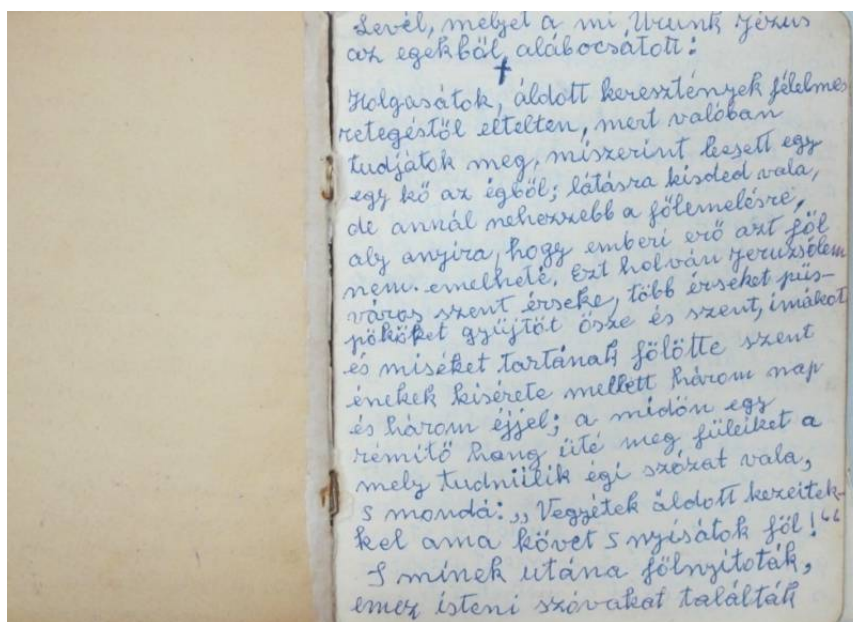 Levél, melyet a mi, Urunk Jézus
az egekből, alábocsátott:
†
Holgasátok, áldott keresztények félelmes
retegéstől eltelten, mert valóban
tudjátok meg, miszerint leesett egy
egy kő az égből; látásra kisded vala,
de annál nehezzebb a fölemelésre,
aly anyira, hogy emberi erő azt föl
nem emelheté. Ezt holván Jeruzsólem
város szent érseke, több érseket püs-
pököket gyűjtöt ősze és szent, imákot
és miséket tartának fölötte szent
énekek kisérete mellett három nap
és három éjjel; a midön egy
remitő hang üté meg füleiket a
mely tudniilik égi szózat vala,
s mondá: „Vegyétek áldott kezeitek-
kel ama követ s nyisátok föl!"
S minek utána fölnyitoták,
emez isteni szóvakat találták